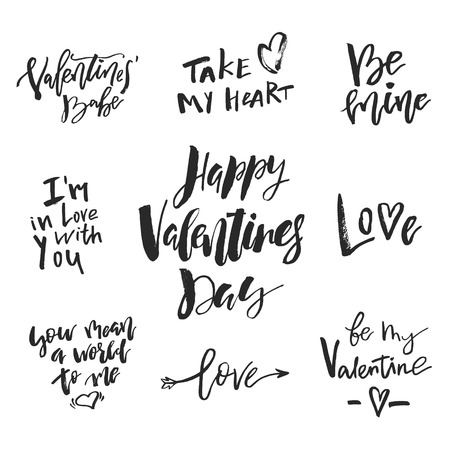 Valentines'
Babe
TAKE
MY HEART
Be
mine
I'm
in Love
with
YOU
Happy
Valentines
Day
Love
you mean
a world
to me
love
be my
Valentine